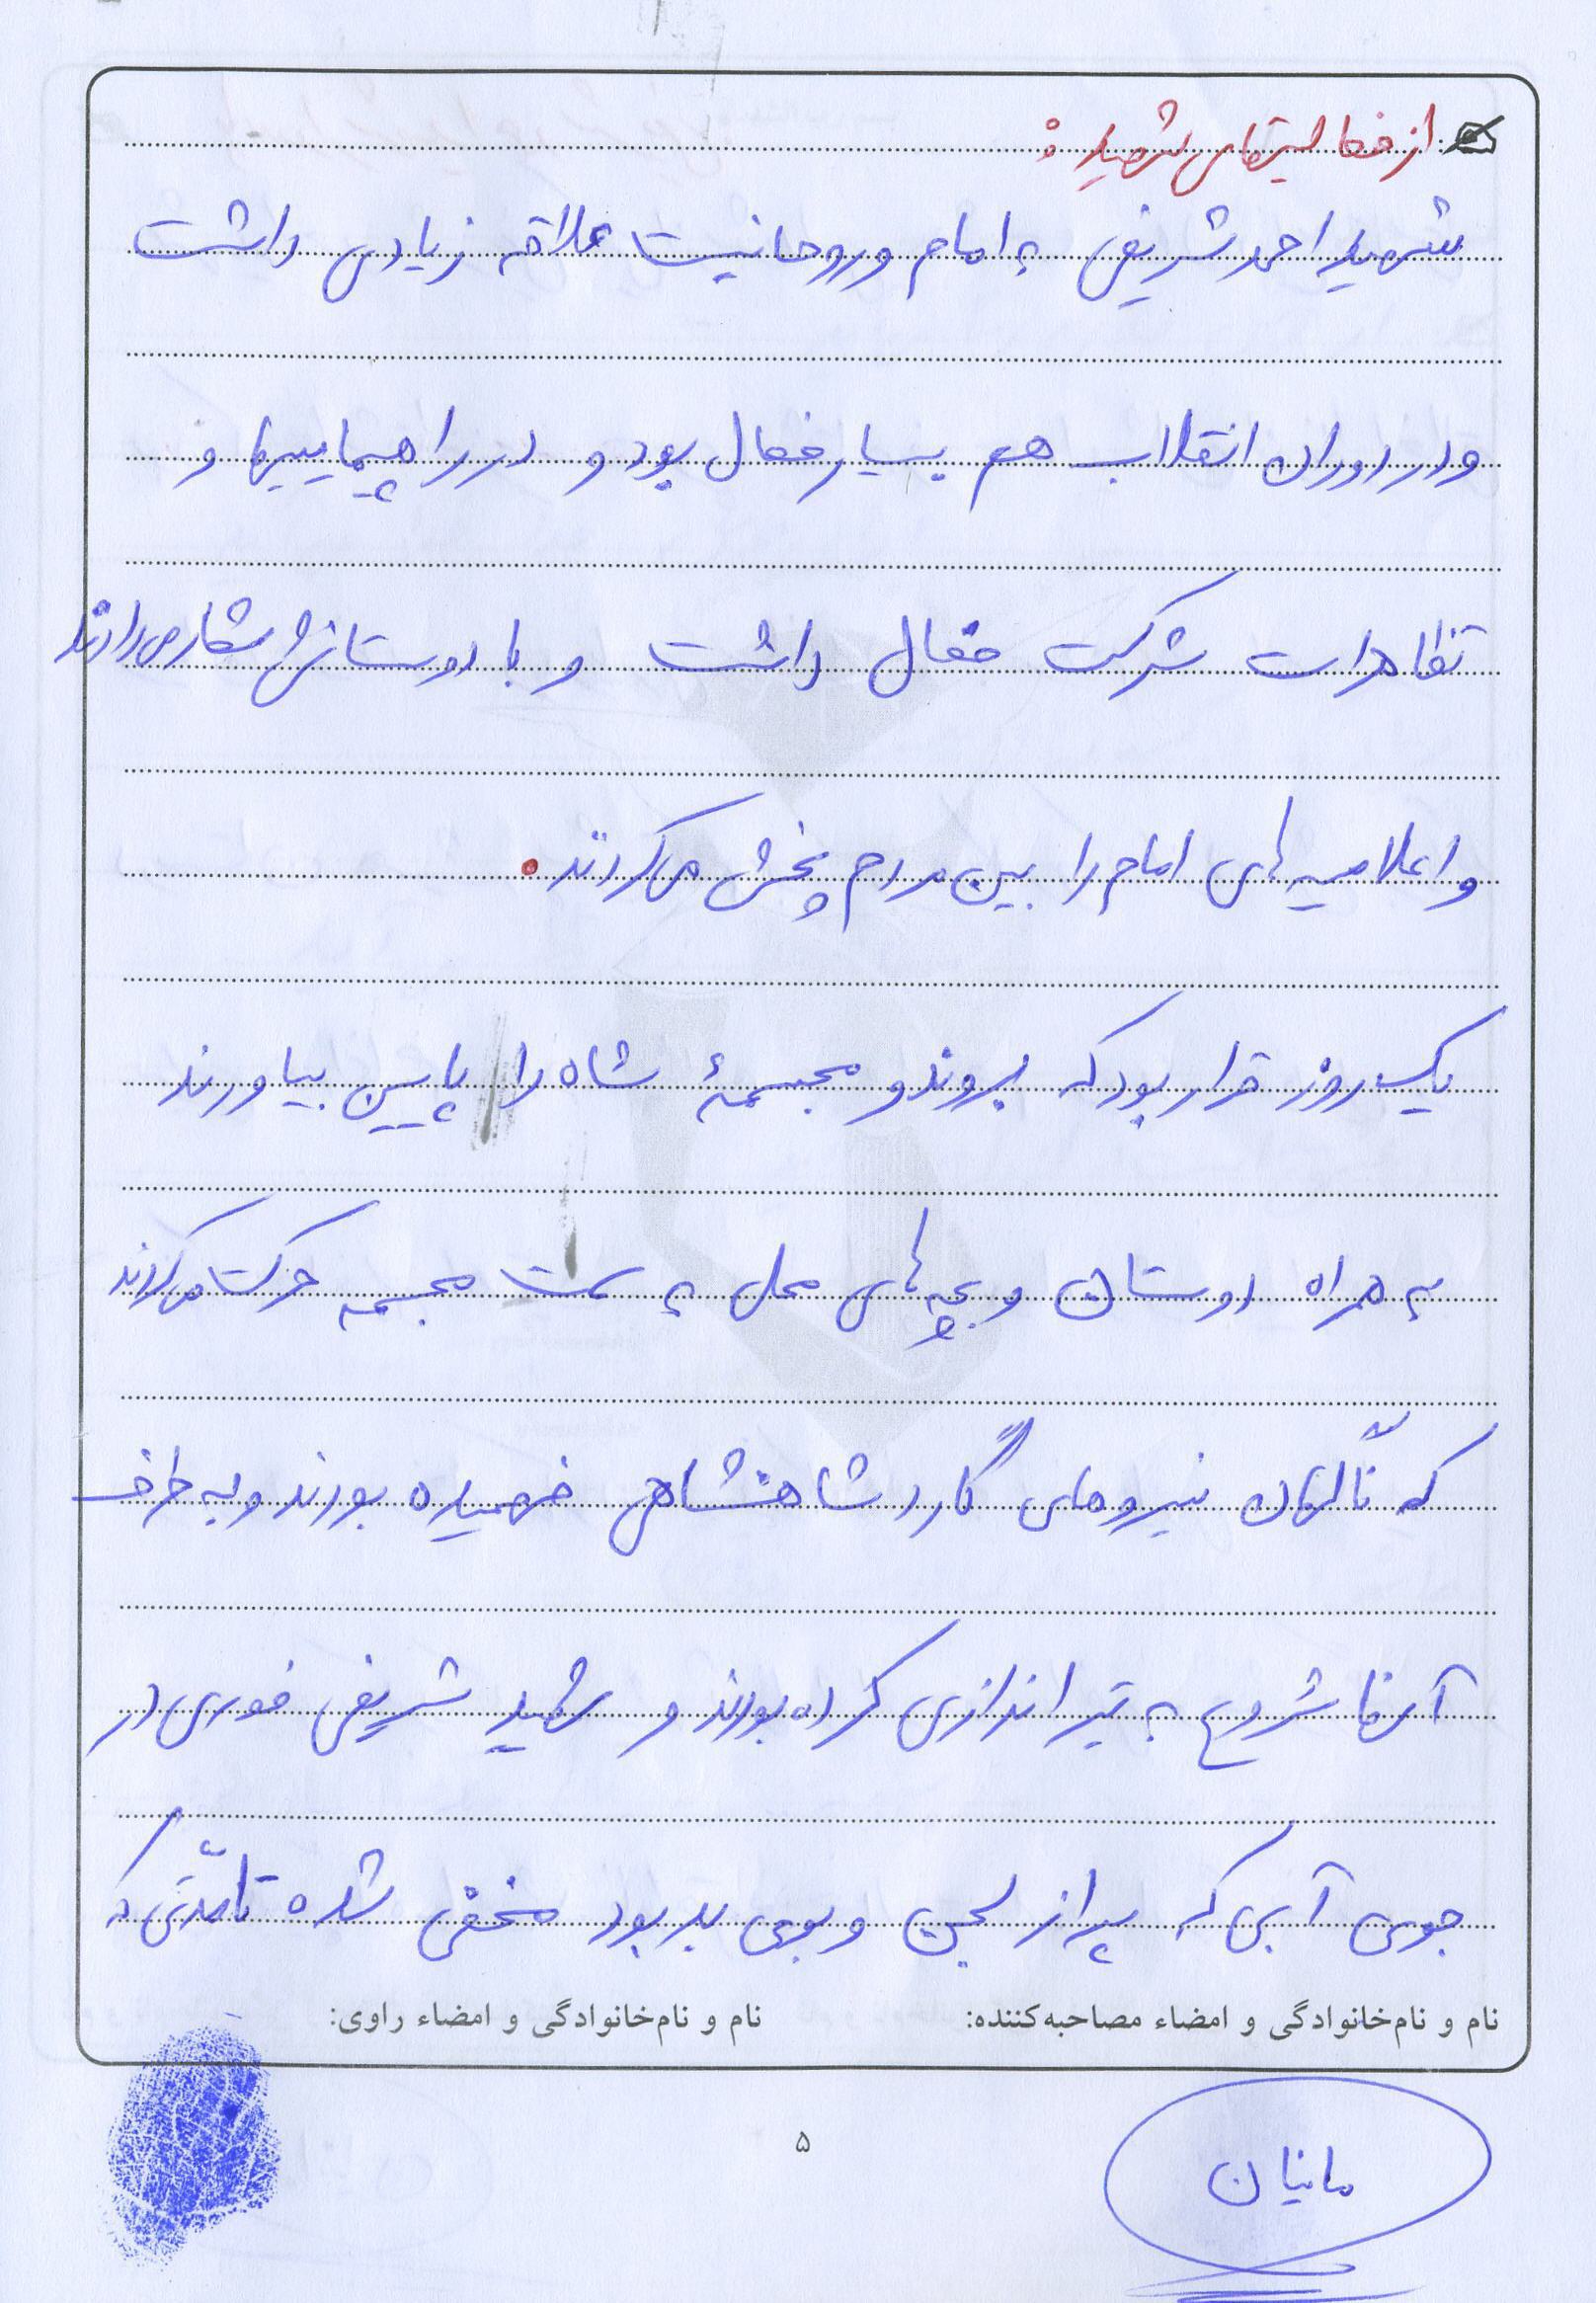 از فعالیتهای شهید:
شهید احمد شریفی به امام و روحانیت علاقه زیادی داشت
و در دوران انقلاب هم بسیار فعال بود و در راهپیماییها و
تظاهرات شرکت فعال داشت و با دوستانش شعار می‌دادند
و اعلامیه‌های امام را بین مردم پخش می‌کردند.
یک روز قرار بود که بروند و مجسمهٔ شاه را پایین بیاورند
به همراه دوستان و بچه‌های محل به سمت مجسمه حرکت می‌کردند
که ناگهان نیروهای گارد شاهنشاهی فهمیده بودند و به طرف
آنها شروع به تیراندازی کرده بودند و شهید شریفی فوری در
جوی آبی که پر از لجن و بوی بد بود مخفی شده تا مدّتی که
نام و نام‌خانوادگی و امضاء مصاحبه‌کننده: نام و نام‌خانوادگی و امضاء راوی:
۵
مانیان